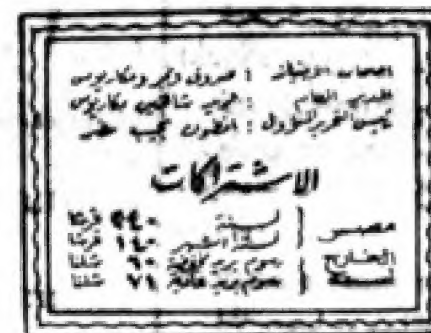 اصحاب الامتياز : صروف ونمر ومكاريوس
المدير العام : فريد شاهين مكاريوس
رئيس التحرير المسؤول : انطون نجيب مطر
الاشتراكات
مصر لسنة ٢٤٠ قرشا
لستة اشهر ١٤٠ قرشا
الخارج رسوم بريد ٩٠ شلنا
لسنة رسوم بريد عادية ٧٤ شلنا